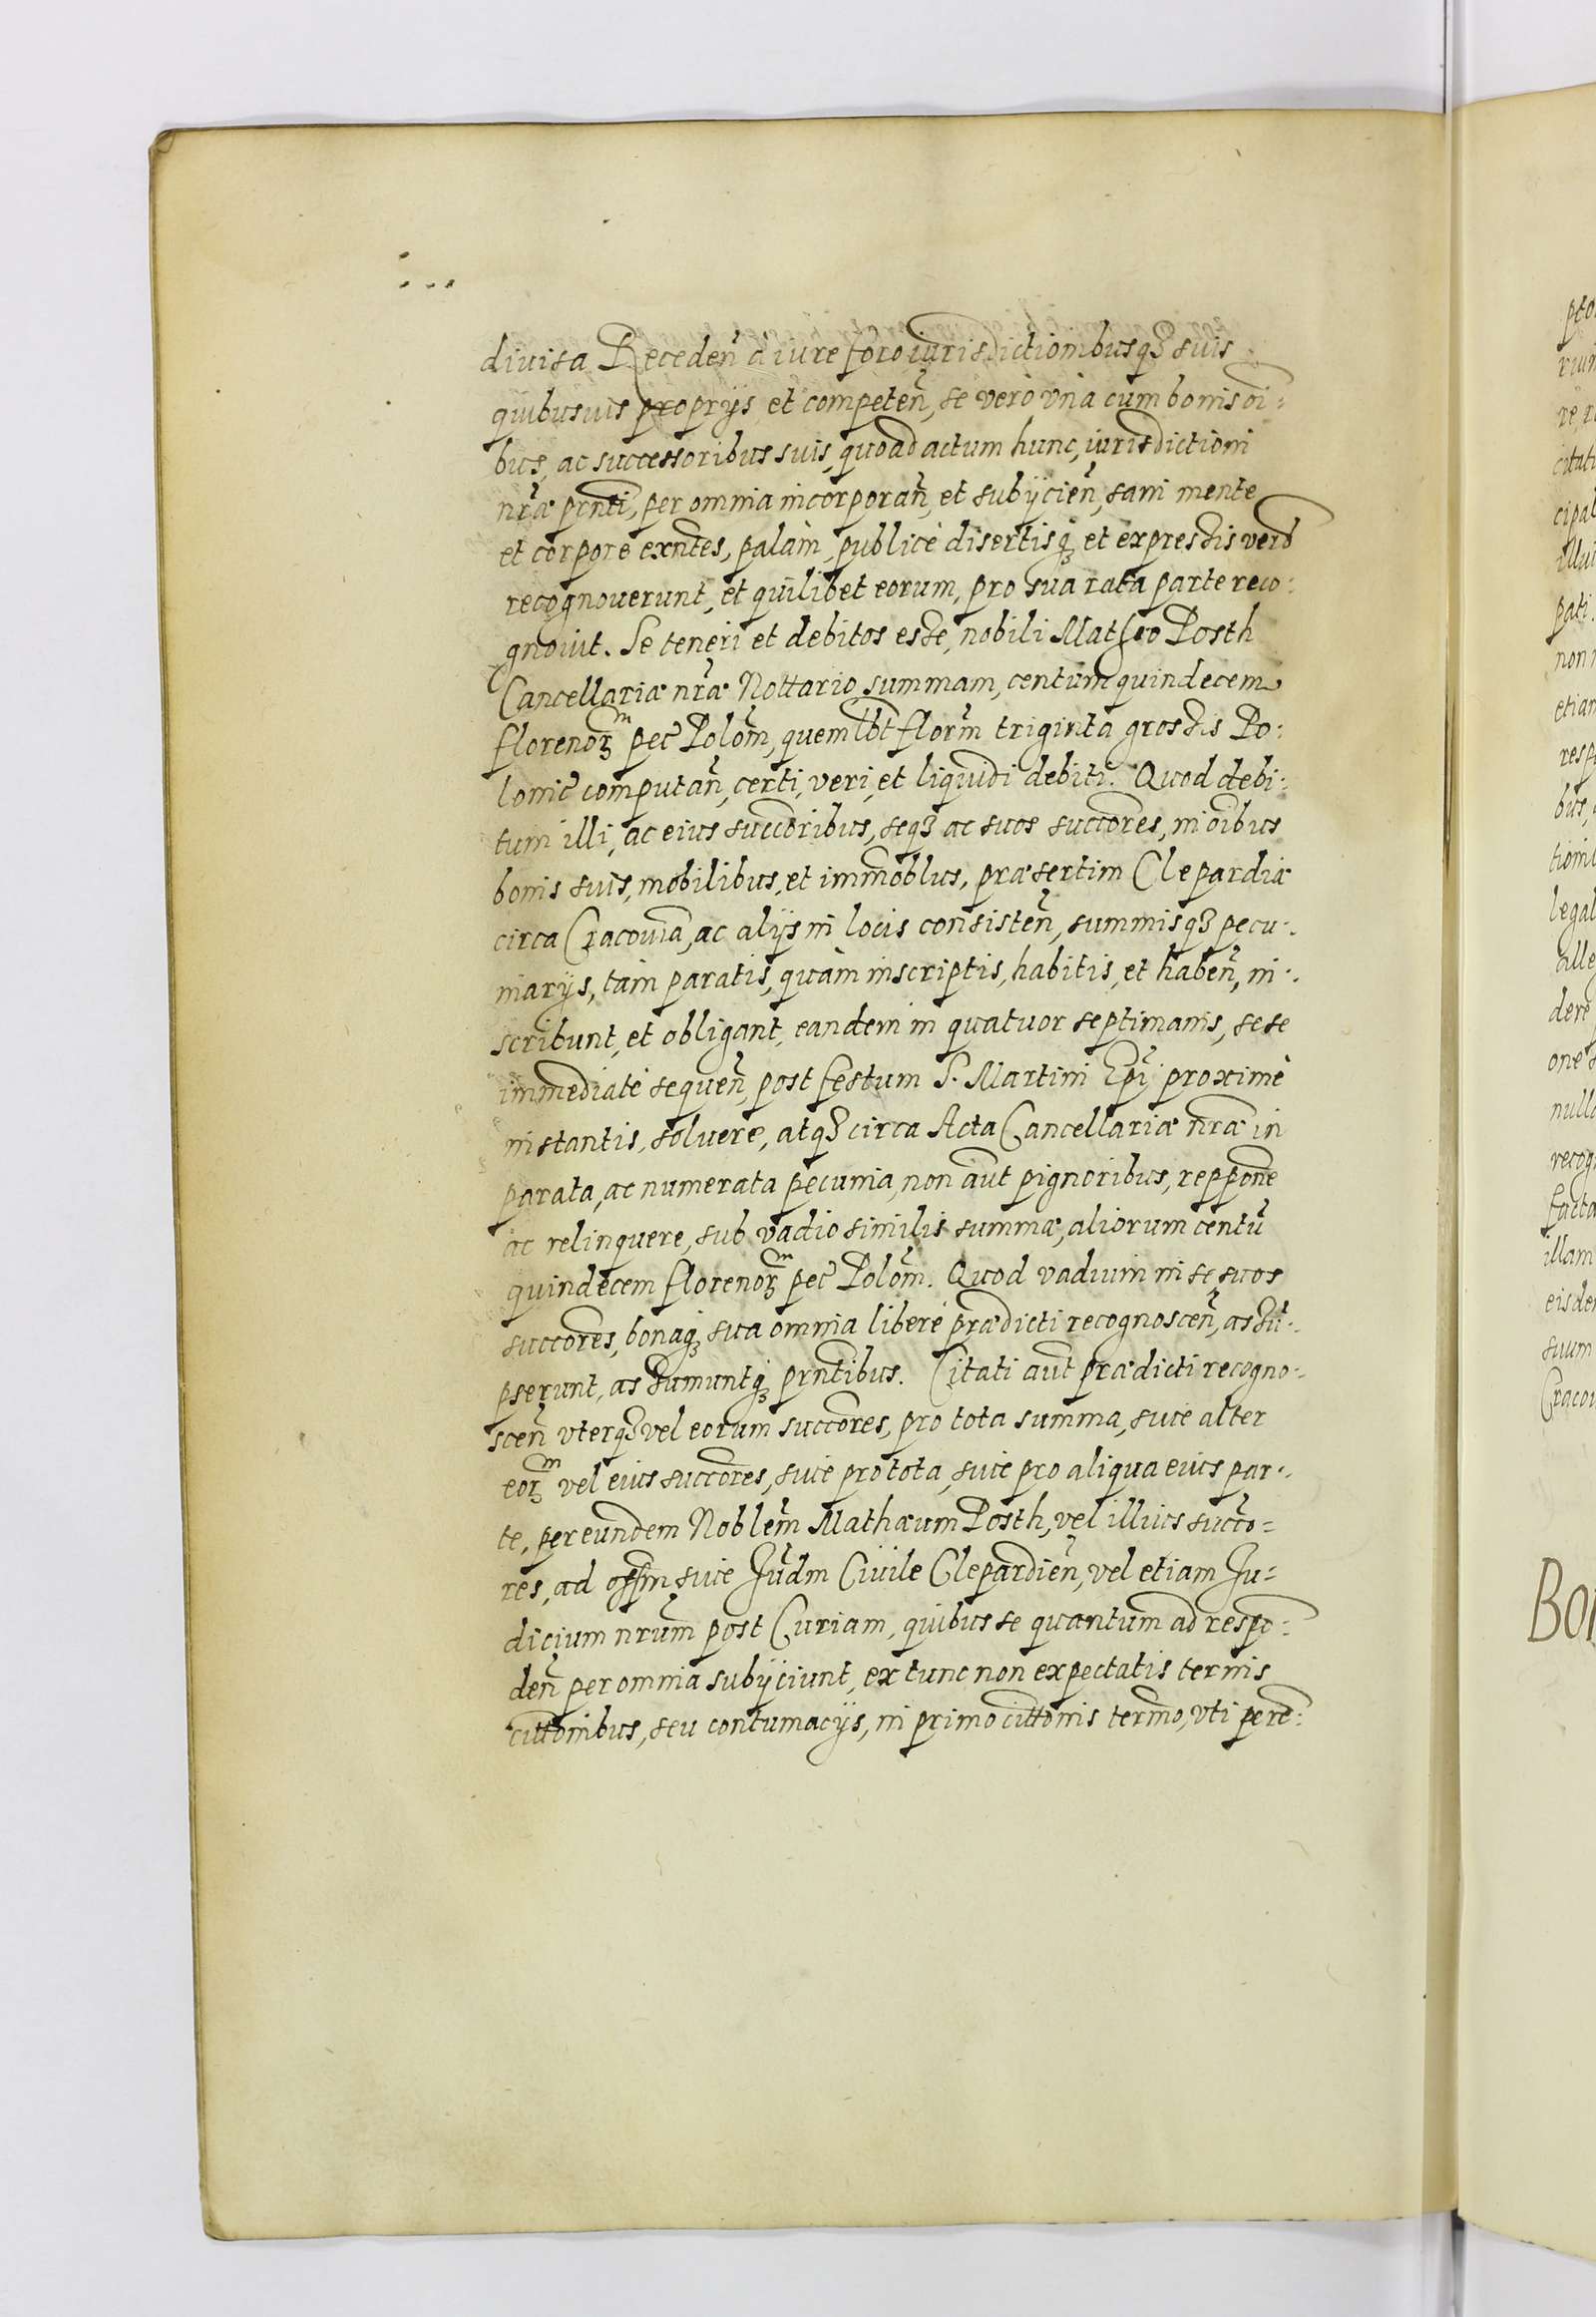 diuisa Recedeñ à iure foro iurisdictionibusq₃ suis
quibusuis proprÿs et competeñ, se verò vnà cum bonis oī=
bus, ac successoribus suis, quoad actum hunc, iurisdictioni
nr̄æ pr̄nti, per omnia incorporañ, et subÿcieñ, sani mente
et corpore exn̄tes, palàm, publicè disertisq₃ et expressis verb
recognouerunt, et quilibet eorum, pro sua rata parte reco=
gnouit. Se teneri et debitos esse, nobili Matheo Posth
Cancellariæ nr̄æ Nottario summam, centum quindecem
florenoꝝm pec̄ Polon̄, quemlib̄t flor̄m triginta grossis Po=
lonic̄ computañ, certi, veri, et liquidi debiti. Quod debi=
tum illi, ac eius succōribus, seq₃ ac suos succōres, in oībus
bonis suis, mobilibus, et immōblus, præsertim Clepardiæ
circa Cracouia, ac alÿs in locis consisteñ, summisq₃ pecu=
niarÿs, tàm paratis, quàm inscriptis, habitis, et habeñ, in=
scribunt, et obligant, eandem in quatuor septimanis, sese
immediatè sequeñ, post festum S. Martini Ep̄i proximè
instantis, soluere, atq₃ circa Acta Cancellariæ nr̄æ in
parata, ac numerata pecunia, non aūt pignoribus, reppōne
ac relinquere, sub vadio similis summæ, aliorum centū
quindecem florenoꝝm pec̄ Polon̄. Quod vadium in se suos
succōres, bonaq₃ sua omnia liberè prædicti recognosceñ, assū=
pserunt, assumuntq₃ pr̄ntibus. Citati aūt prædicti recogno=
sceñ vterq₃ vel eorum succōres, pro tota summa, siue alter
eoꝝm vel eius succōres, siue pro tota, siue pro aliqua eius par=
te, per eundem Noblēm Mathæum Posth, vel illius succō=
res, ad off̄m siue Jud̄m Ciuile Clepardieñ, vel etiam Ju=
dicium nr̄um post Curiam, quibus se quantum ad respō=
deñ per omnia subÿciunt, ex tunc non expectatis ternis
citt̄onibus, seu contumacÿs, in primo citt̄onis term̄o, vti perē=